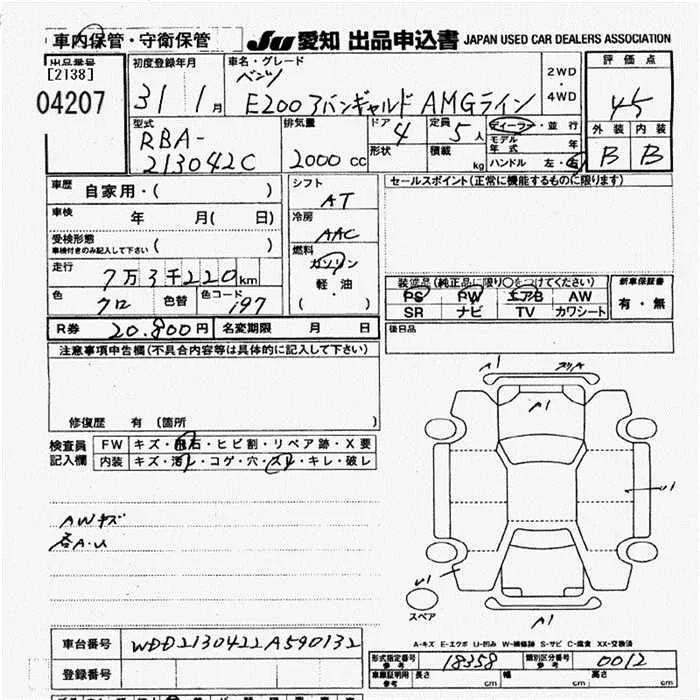 車内保管・守衛保管
JU 愛知 出品申込書 JAPAN USED CAR DEALERS ASSOCIATION
出品番号
[2138]
04207
初度登録年月
31 1月
車名・グレード
ベンツ
E200 アバンギャルド AMGライン
2WD
4WD
評価点
外装 内装
B B
型式
RBA-
213042C
排気量
2000 cc
ドア 4
形状
定員 5人
積載 kg
ディーラー・並行
モデル年式 年
ハンドル 左・右
車歴 自家用・( )
車検 年 月( 日)
受検形態
車検付きのみ記入して下さい ( )
走行 7万3千220km
色 クロ 色替 色コード 197
シフト
AT
冷房
AAC
燃料
ガソリン
軽・油
( )
セールスポイント(正常に機能するものに限ります)
装備品(純正品に限り○をつけてください)
PS PW エアB AW
SR ナビ TV カワシート
新車保証書
有・無
後日品
R券 20.800円 名変期限 月 日
注意事項申告欄(不具合内容等は具体的に記入して下さい)
修復歴 有 (箇所 )
検査員
記入欄
FW キズ・飛石・ヒビ割・リペア跡・X要
内装 キズ・汚レ・コゲ・穴・スレ・キレ・破レ
AWキズ
各A.U
A1
スリA
A1
U1
U1
A1
スペア
A-キズ E-エクボ U-凹み W-補修跡 S-サビ C-腐食 XX-交換済
車台番号 WDD2130422A590132
登録番号
形式指定番号 参考 18358 類別区分番号 参考 0012
車車証明用 参考 長さ cm 幅 cm 高さ cm